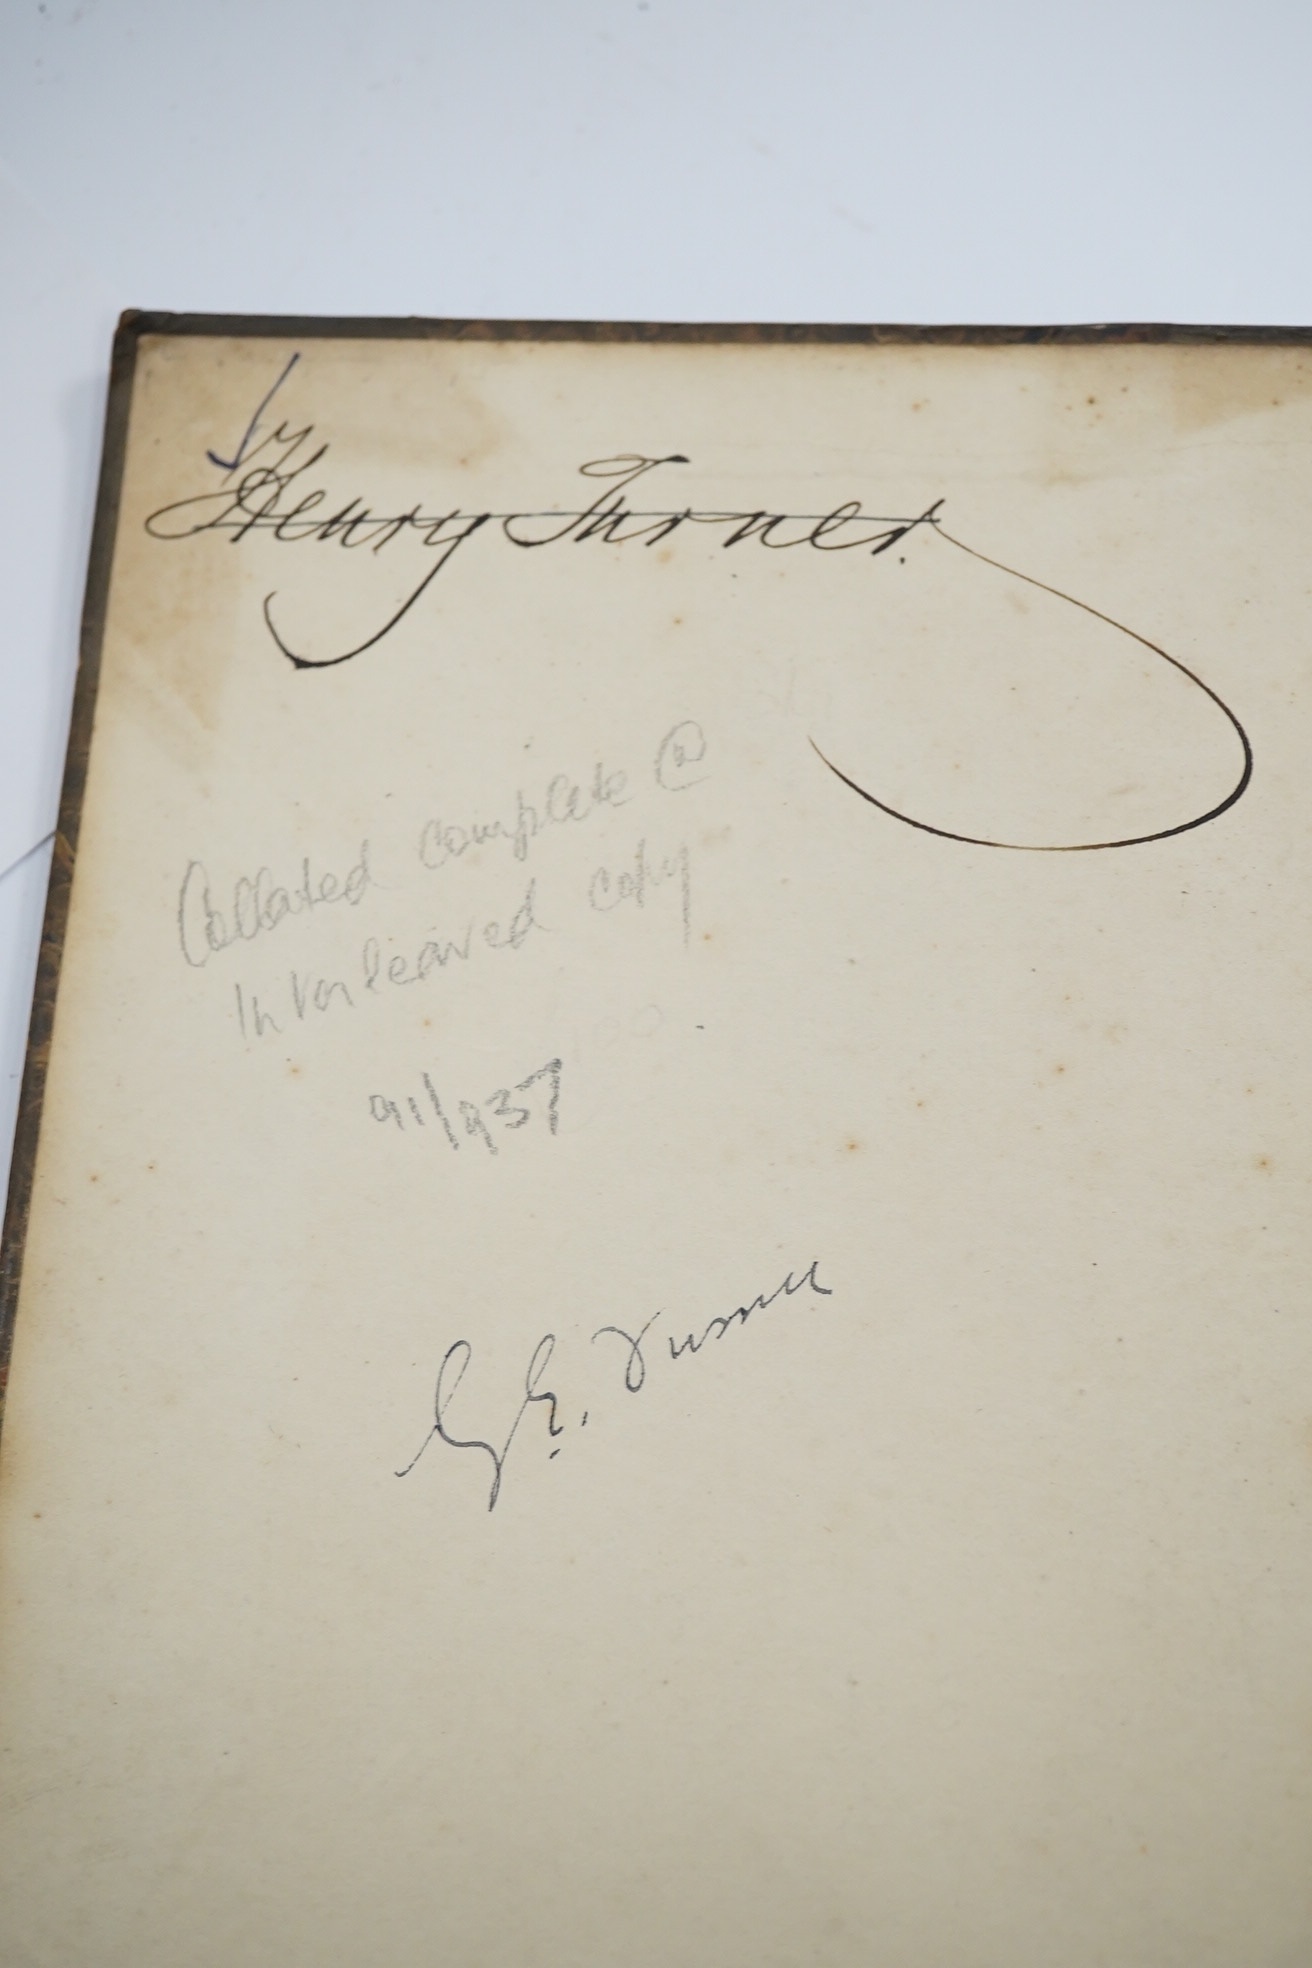 Henry Turner.
Collated complete @
Interleaved copy
91/937
G. E.